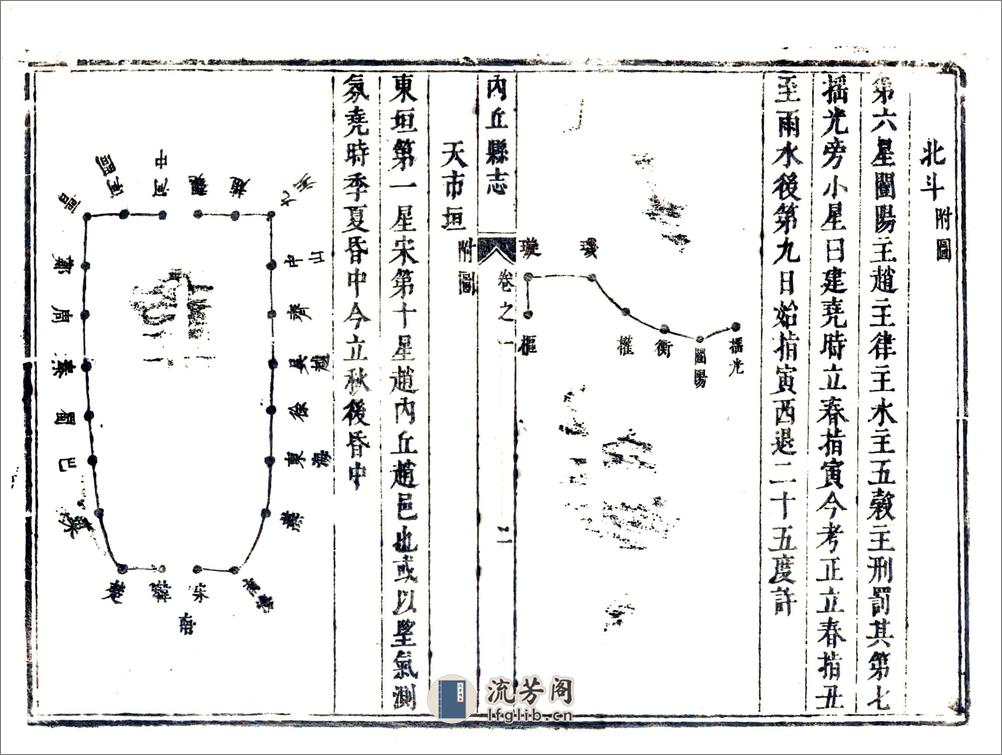 北斗附圖
第六星闓陽主趙主律主水主五穀主刑罰其第七
搖光旁小星曰建堯時立春指寅今考正立春指丑
至雨水後第九日始指寅西退二十五度許
璇
璣
樞
權
衡
闓陽
搖光
內丘縣志
卷之一
二
天市垣附圖
東垣第一星宋第十星趙內丘趙邑也或以望氣測
氛堯時季夏昏中今立秋後昏中
九河
趙
魏
河中
河間
晉
鄭
周
秦
蜀
巴
梁
楚
韓
宋
南海
燕
東海
徐
吳越
齊
中山
流芳阁
lfglib.cn